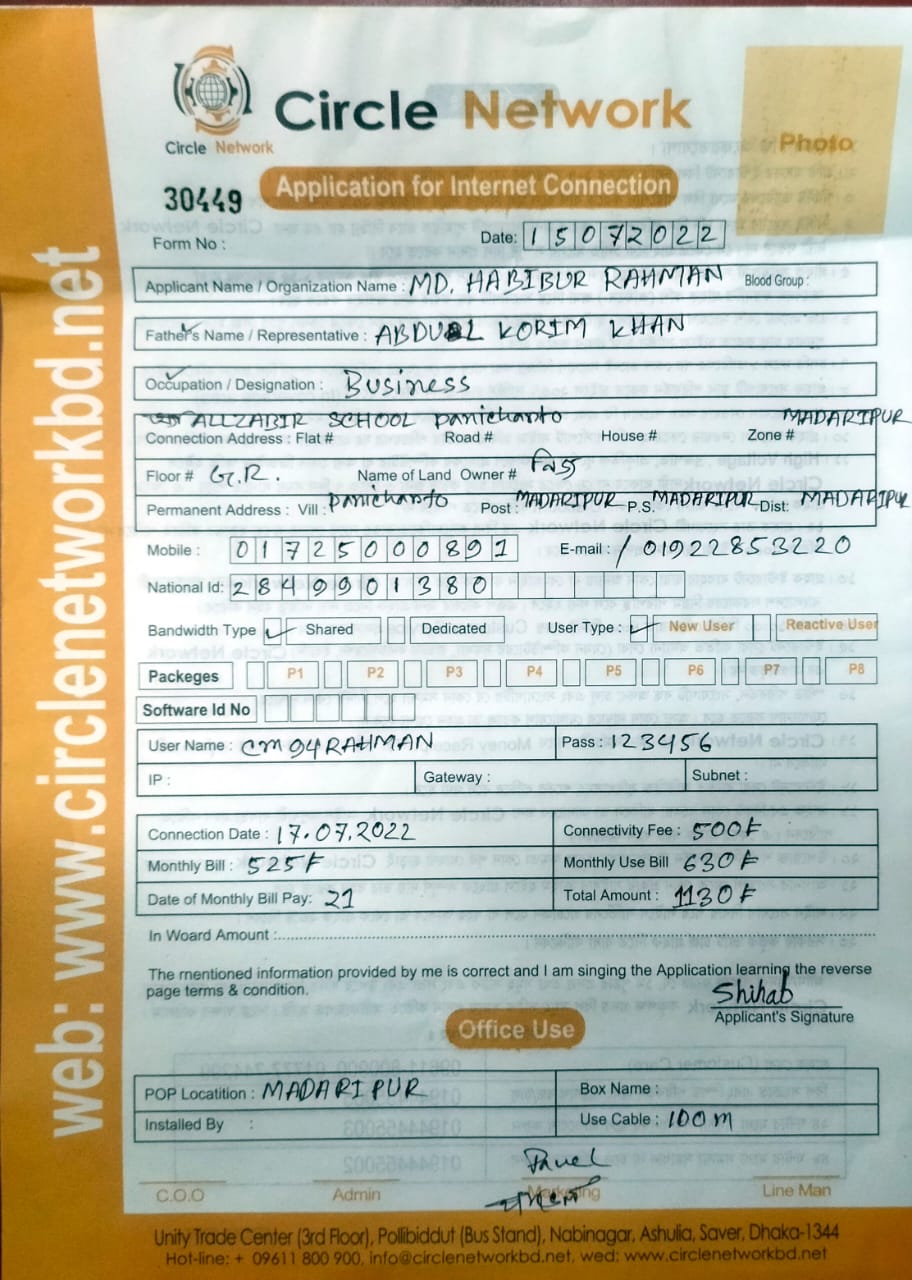 Circle Network
Circle Network
Photo
30449
Application for Internet Connection
Form No :
Date: 15072022
Applicant Name / Organization Name : MD. HABIBUR RAHMAN Blood Group :
Father's Name / Representative : ABDUL KORIM KHAN
Occupation / Designation : Business
ALLZABIR SCHOOL panichanto MADARIPUR
Connection Address : Flat # Road # House # Zone #
Floor # G.R. Name of Land Owner # নিজ
Permanent Address : Vill : panichanto Post : MADARIPUR P.S. MADARIPUR Dist: MADARIPUR
Mobile : 01725000891 E-mail / 01922853220
National Id: 2849901380
Bandwidth Type ✓ Shared Dedicated User Type : ✓ New User Reactive User
Packeges P1 P2 P3 P4 P5 P6 P7 P8
Software Id No
User Name : CM94RAHMAN Pass : 123456
IP : Gateway : Subnet :
Connection Date : 17.07.2022 Connectivity Fee : 500৳
Monthly Bill : 525৳ Monthly Use Bill 630৳
Date of Monthly Bill Pay: 21 Total Amount : 1130৳
In Woard Amount :
The mentioned information provided by me is correct and I am singing the Application learning the reverse
page terms & condition.
Shihab
Applicant's Signature
Office Use
POP Locatition : MADARIPUR Box Name :
Installed By : Use Cable : 100m
Pavel
C.O.O Admin Marketing Line Man
Unity Trade Center (3rd Floor), Pollibiddut (Bus Stand), Nabinagar, Ashulia, Saver, Dhaka-1344
Hot-line: + 09611 800 900, info@circlenetworkbd.net, wed: www.circlenetworkbd.net
web: www.circlenetworkbd.net